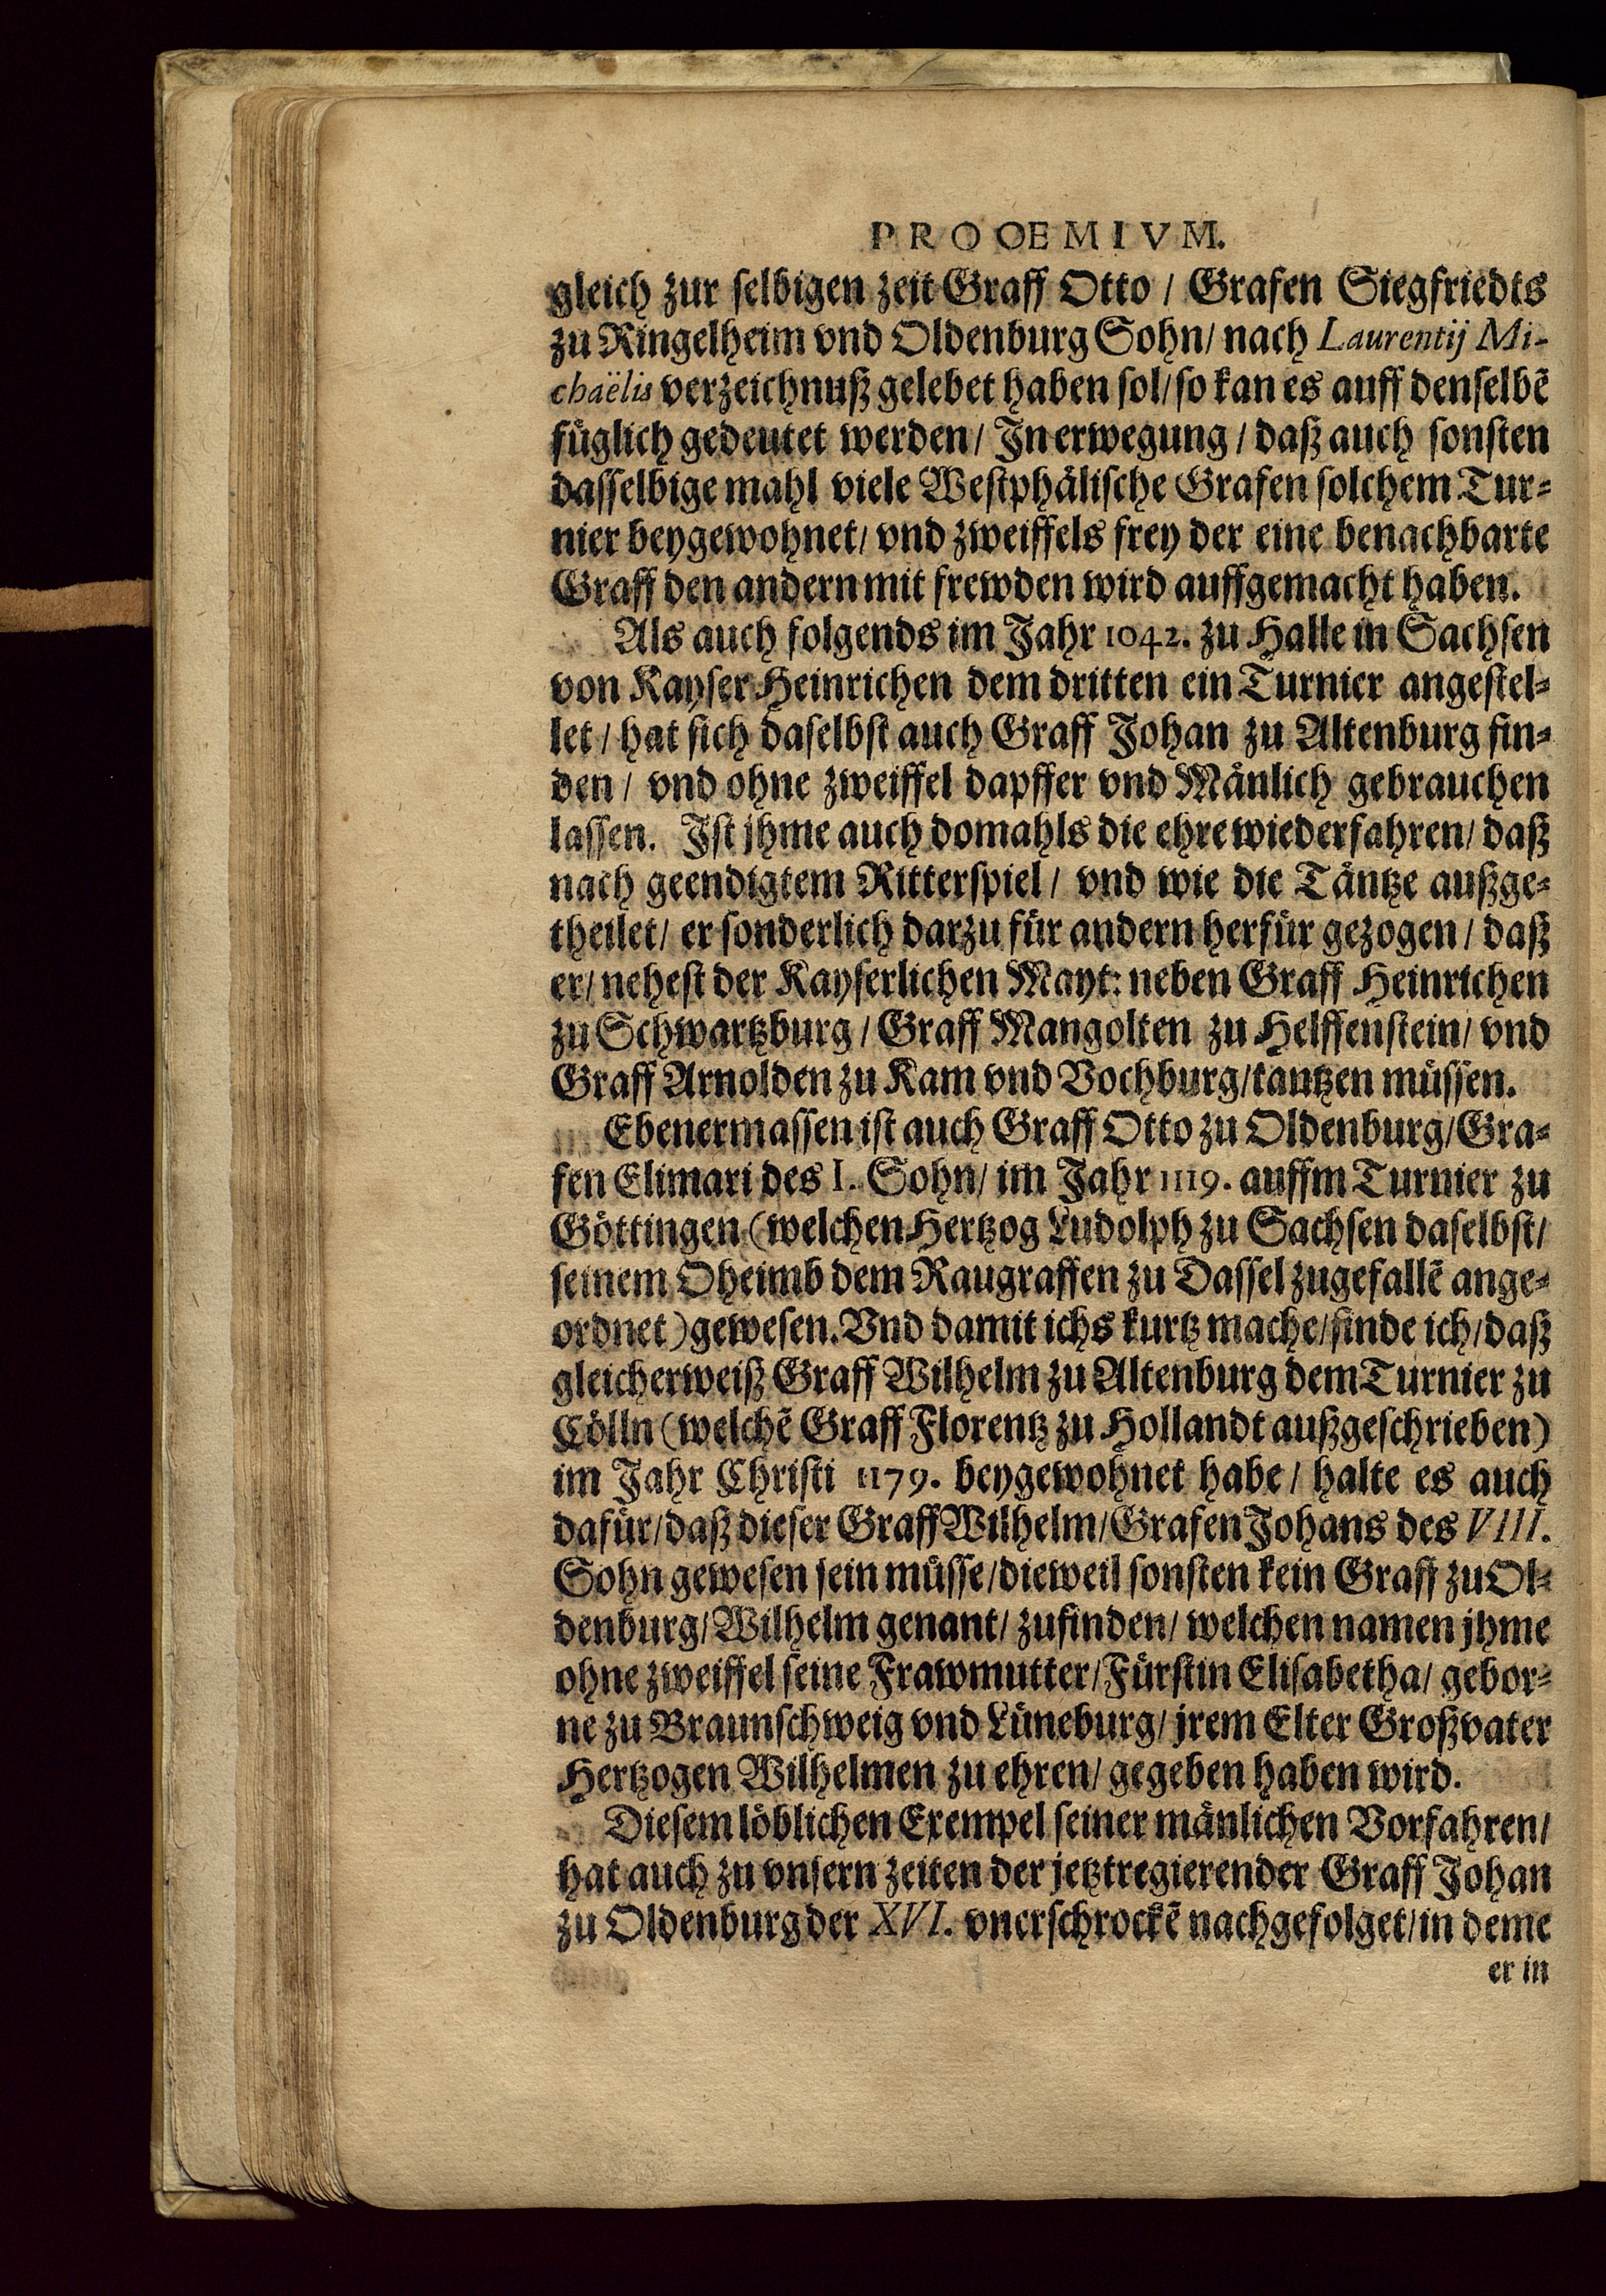 PROOEMIVM.
gleich zur selbigen zeit Graff Otto / Grafen Siegfriedts
zu Ringelheim vnd Oldenburg Sohn / nach Laurentij Mi-
chaëlis verzeichnuß gelebet haben sol / so kan es auff denselbē
füglich gedeutet werden / In erwegung / daß auch sonsten
dasselbige mahl viele Westphälische Grafen solchem Tur-
nier beygewohnet / vnd zweiffels frey der eine benachbarte
Graff den andern mit frewden wird auffgemacht haben.
Als auch folgends im Jahr 1042. zu Halle in Sachsen
von Kayser Heinrichen dem dritten ein Turnier angestel-
let / hat sich daselbst auch Graff Johan zu Altenburg fin-
den / vnd ohne zweiffel dapffer vnd Mänlich gebrauchen
lassen. Ist jhme auch domahls die ehre wiederfahren / daß
nach geendigtem Ritterspiel / vnd wie die Täntze außge-
theilet / er sonderlich darzu für andern herfür gezogen / daß
er / nehest der Kayserlichen Mayt: neben Graff Heinrichen
zu Schwartzburg / Graff Mangolten zu Helffenstein / vnd
Graff Arnolden zu Kam vnd Vochburg / tantzen müssen.
Ebenermassen ist auch Graff Otto zu Oldenburg / Gra-
fen Elimari des I. Sohn / im Jahr 1119. auffm Turnier zu
Göttingen (welchen Hertzog Ludolph zu Sachsen daselbst /
seinem Oheimb dem Raugraffen zu Dassel zugefallē ange-
ordnet) gewesen. Vnd damit ichs kurtz mache / finde ich / daß
gleicherweiß Graff Wilhelm zu Altenburg dem Turnier zu
Cölln (welchē Graff Florentz zu Hollandt außgeschrieben)
im Jahr Christi 1179. beygewohnet habe / halte es auch
dafür / daß dieser Graff Wilhelm / Grafen Johans des VIII.
Sohn gewesen sein müsse / dieweil sonsten kein Graff zu Ol-
denburg / Wilhelm genant / zufinden / welchen namen jhme
ohne zweiffel seine Frawmutter / Fürstin Elisabetha / gebor-
ne zu Braunschweig vnd Lüneburg / jrem Elter Großvater
Hertzogen Wilhelmen zu ehren / gegeben haben wird.
Diesem löblichen Exempel seiner mänlichen Vorfahren /
hat auch zu vnsern zeiten der jetztregierender Graff Johan
zu Oldenburg der XVI. vnerschrockē nachgefolget / in deme
er in